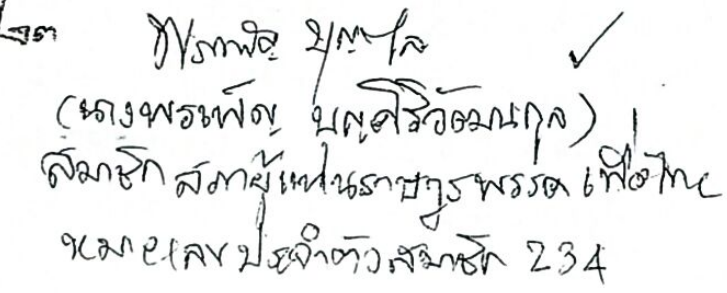 พรเพ็ญ บุญ
(นางพรเพ็ญ บุญศิริวัฒนกุล)
สมาชิกสภาผู้แทนราษฎรพรรคเพื่อไทย
หมายเลขประจำตัวสมาชิก 234